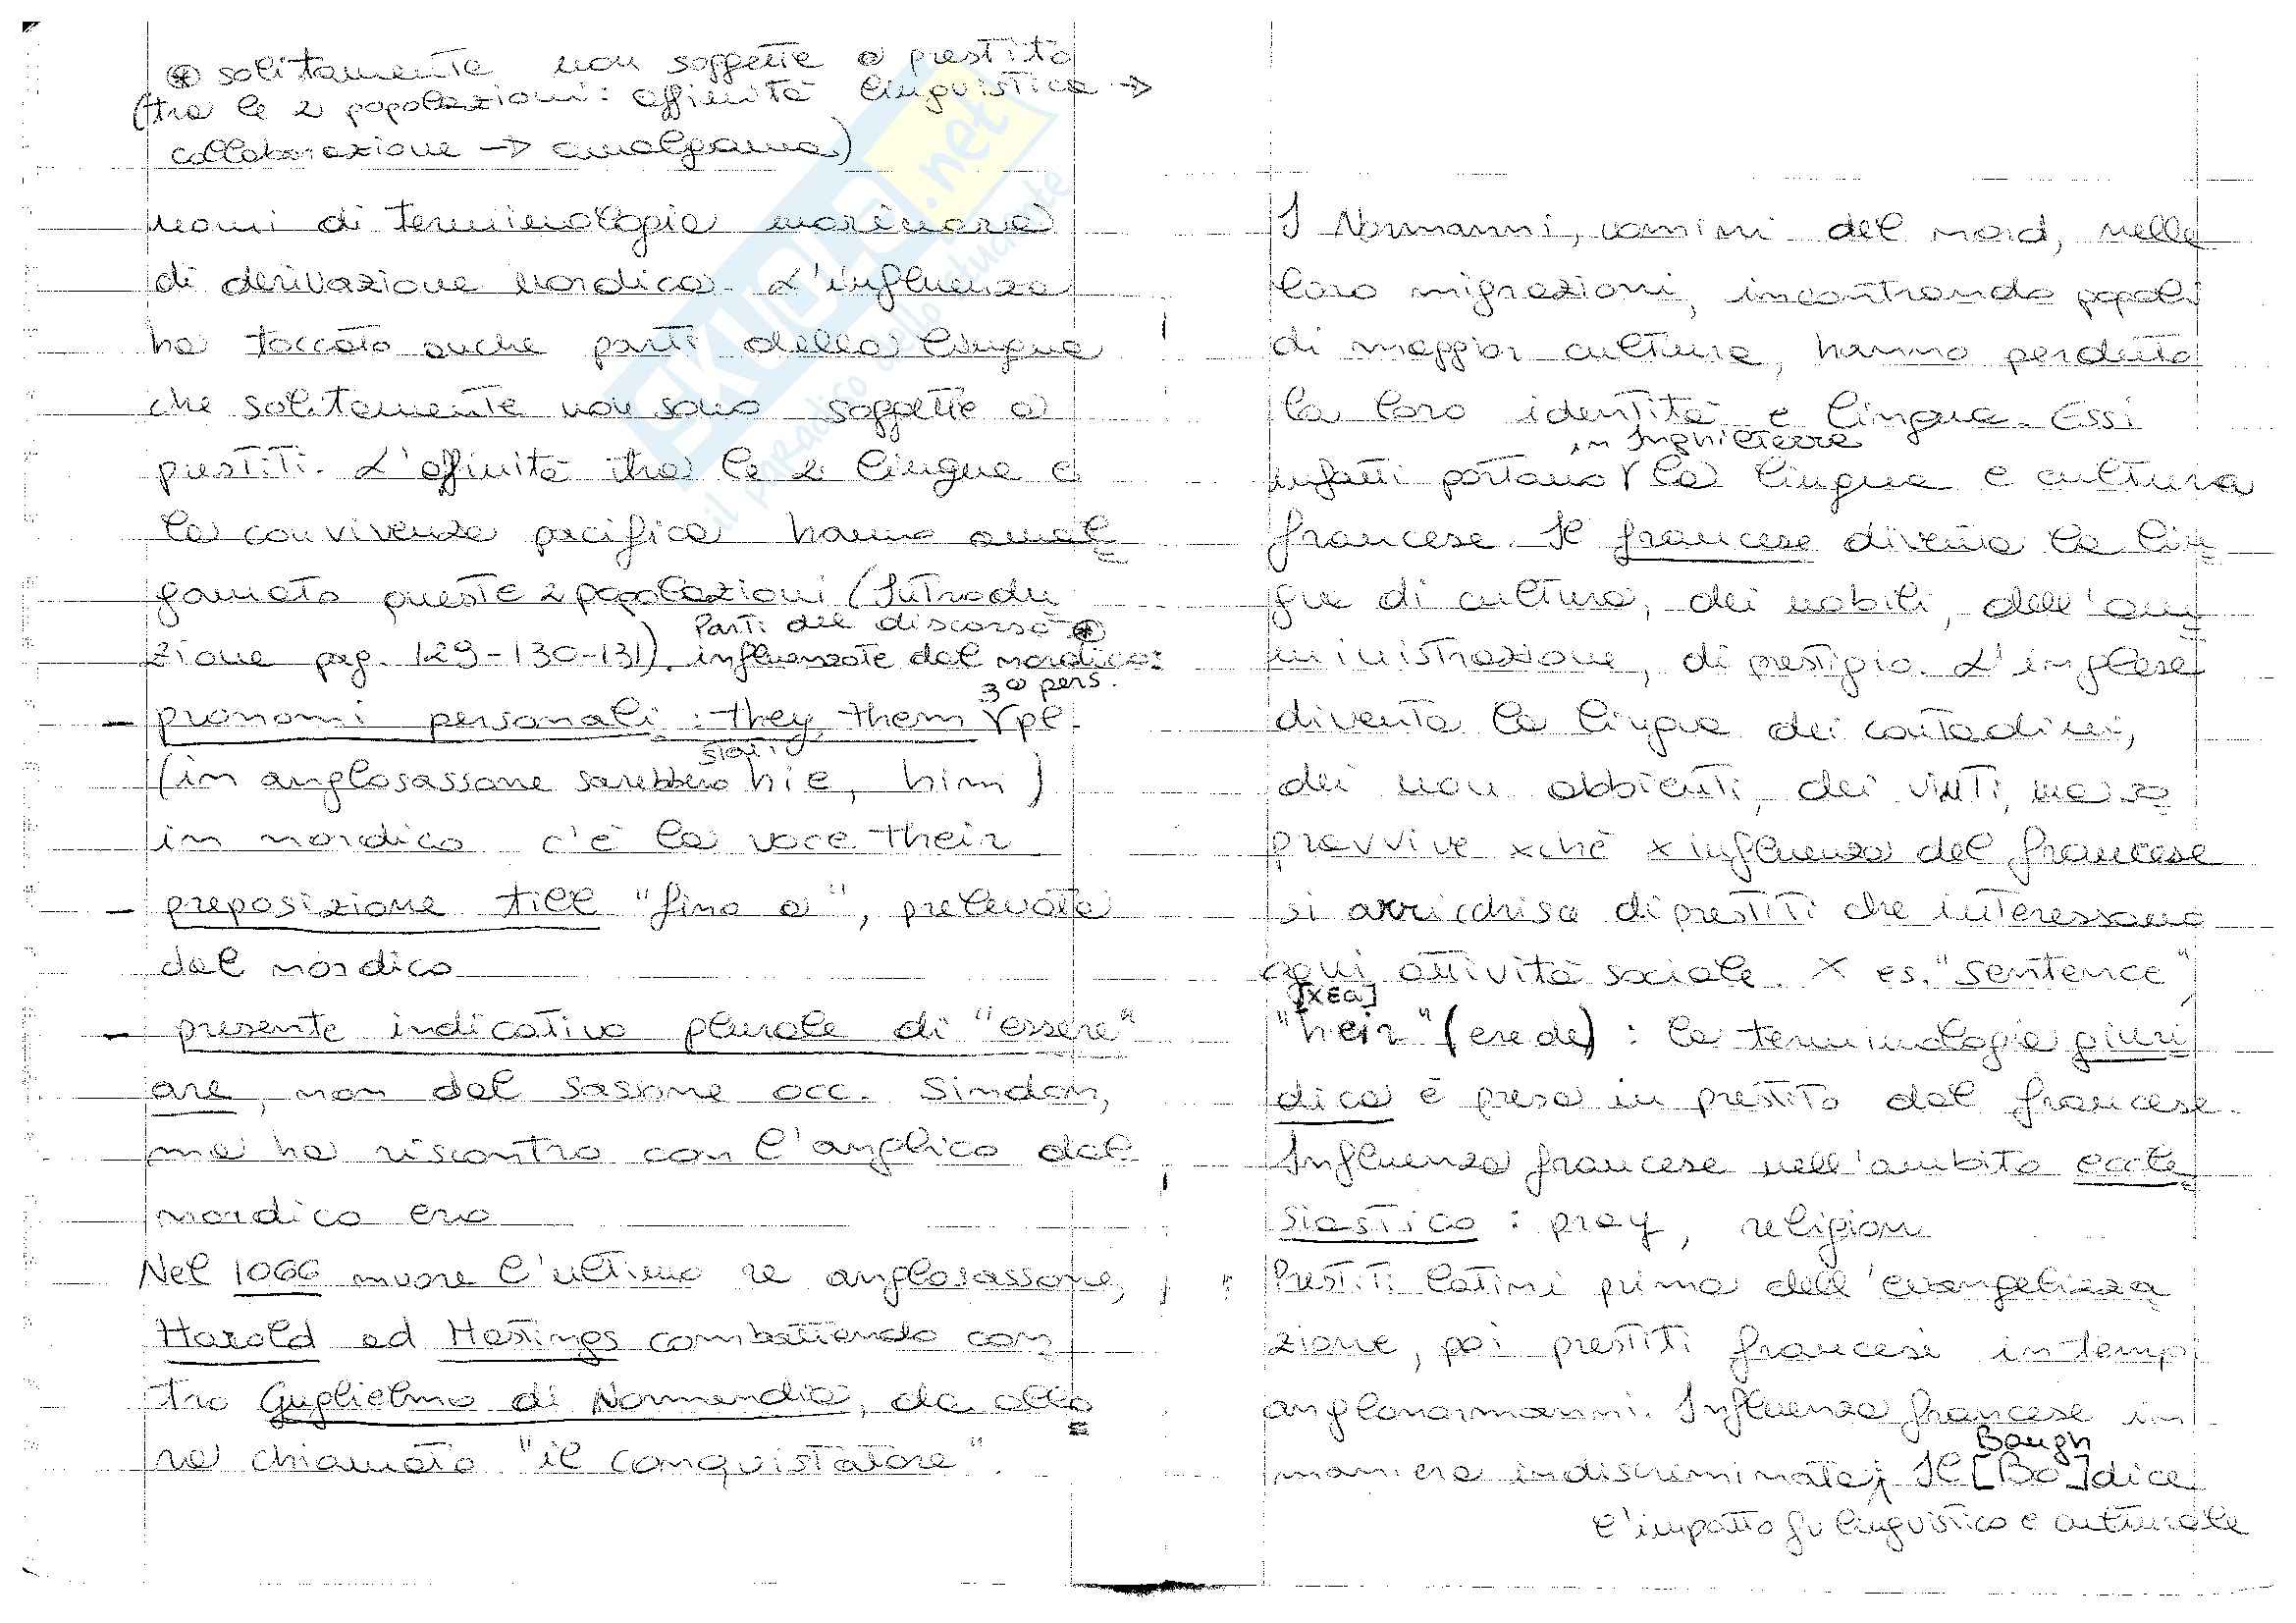 ⊛ solitamente non soggette a prestito
(tra le 2 popolazioni: affinità linguistica →
collaborazione → amalgama)
nomi di terminologia marinara
di derivazione nordica. L'influenza
ha toccato anche parti della lingua
che solitamente non sono soggette a
prestiti. L'affinità tra le 2 lingue e
la convivenza pacifica hanno amal
gamato queste 2 popolazioni (Introdu
zione pag. 129-130-131). Parti del discorso ⊛
influenzate dal nordico:
- pronomi personali: they, them 3a pers. pl.
(in anglosassone sarebbero stati hie, him)
in nordico c'è la voce their
- preposizione till "fino a", prelevata
dal nordico
- presente indicativo plurale di "essere"
are, non dal sassone occ. sindon,
ma ha riscontro con l'anglico dal
nordico ero
Nel 1066 muore l'ultimo re anglosassone,
Harold ad Hastings combattendo con
tro Guglielmo di Normandia, da allo
ra chiamato "il conquistatore".
I Normanni, uomini del nord, nelle
loro migrazioni, incontrando popoli
di maggior cultura, hanno perduto
la loro identità e lingua. Essi
infatti portano in Inghilterra la lingua e cultura
francese. Il francese diventa la lin
gua di cultura, dei nobili, dell'am
ministrazione, di prestigio. L'inglese
diventa la lingua dei contadini,
dei non abbienti, dei vinti, ma so
pravvive xchè x influenza del francese
si arricchisce di prestiti che interessano
ogni attività sociale. X es. "sentence",
"heir" [ɛə] (erede): la terminologia giuri
dica è presa in prestito dal francese.
Influenza francese nell'ambito eccle
siastico: pray, religion
Prestiti latini prima dell'evangelizza
zione, poi prestiti francesi in tempi
anglonormanni. Influenza francese in
maniera indiscriminata; Il [Bo] Baugh dice
l'impatto fu linguistico e culturale
il paradiso dello studente
SKUOLA.net